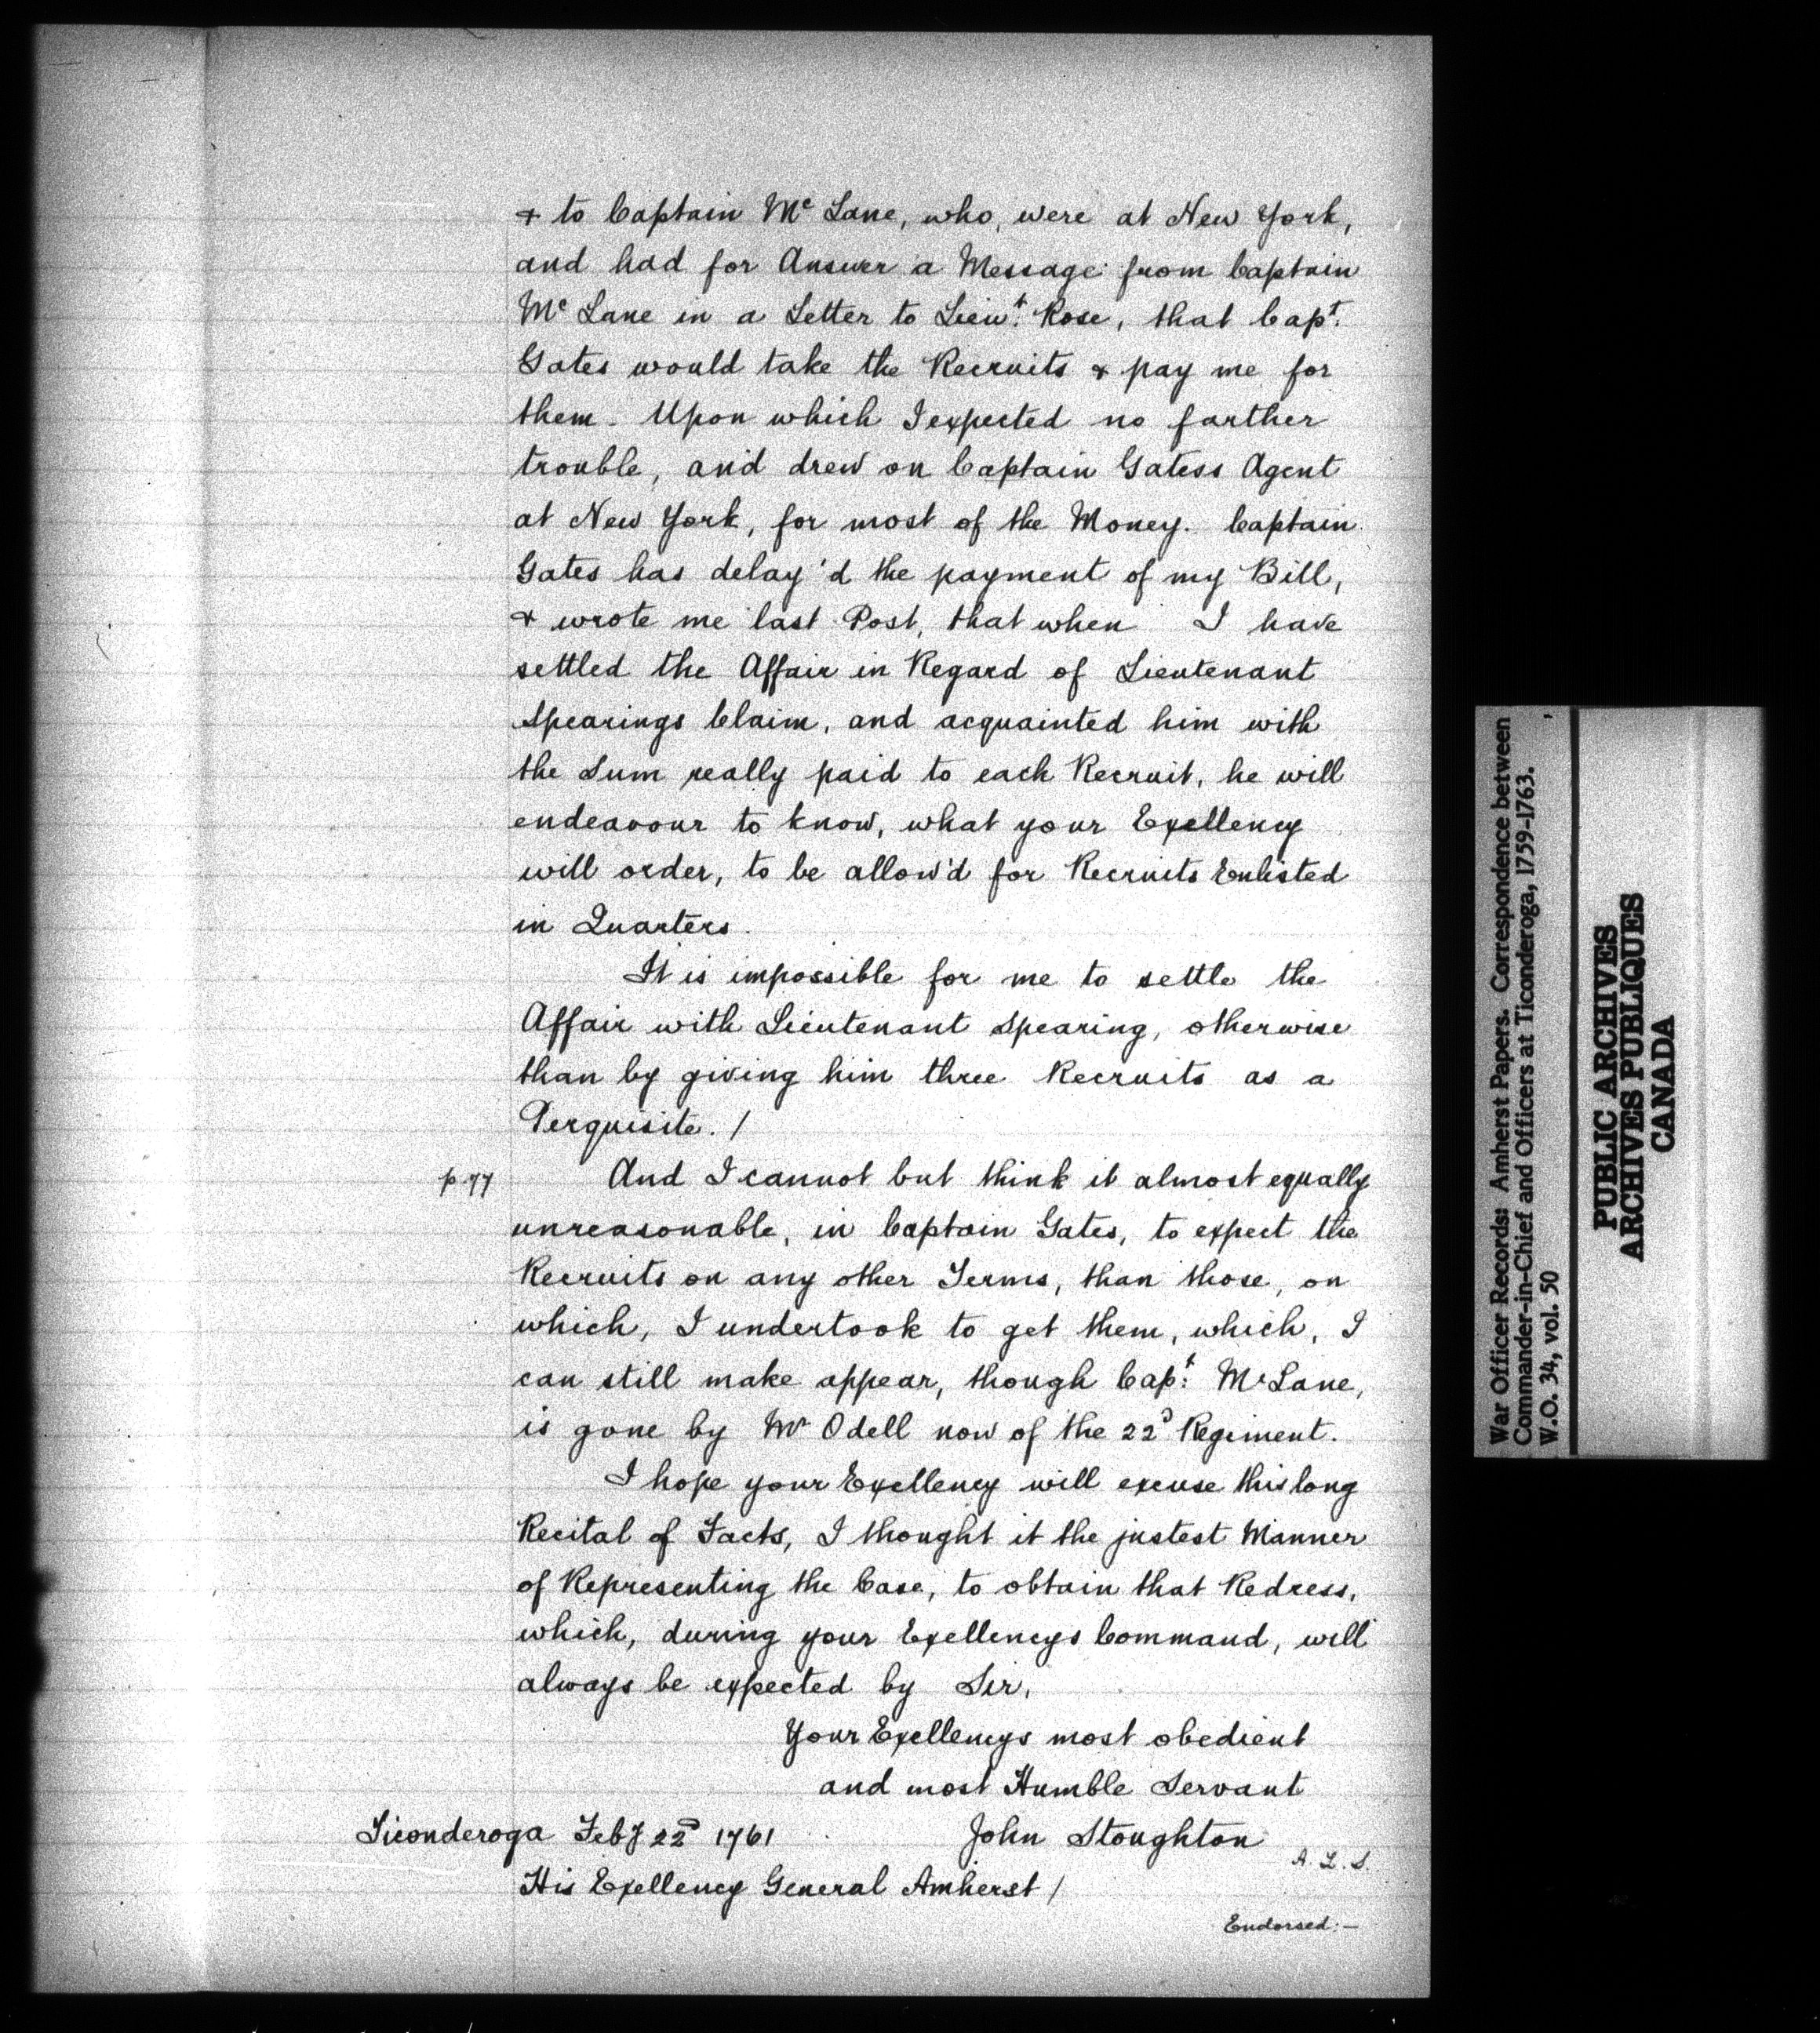 & to Captain Mc Lane, who, were at New York,
and had for Answer a Message from Captain
Mc Lane in a Letter to Lieut. Rose, that Capt.
Gates would take the Recruits & pay me for
them. Upon which I expected no farther
trouble, and drew on Captain Gatess Agent
at New York, for most of the Money. Captain
Gates has delay'd the payment of my Bill,
& wrote me last Post, that when I have
settled the Affair in Regard of Lieutenant
Spearings Claim, and acquainted him with
the Sum really paid to each Recruit, he will
endeavour to know, what your Exellency
will order, to be allow'd for Recruits Enlisted
in Quarters.
It is impossible for me to settle the
Affair with Lieutenant Spearing, otherwise
than by giving him three Recruits as a
Perquisite. /
p 77 And I cannot but think it almost equally
unreasonable, in Captain Gates, to expect the
Recruits on any other Terms, than those, on
which, I undertook to get them, which, I
can still make appear, though Capt: Mc Lane,
is gone by Mr Odell now of the 22d Regiment.
I hope your Exellency will excuse this long
Recital of Facts, I thought it the justest Manner
of Representing the Case, to obtain that Redress,
which, during your Exellencys Command, will
always be expected by Sir,
Your Exellencys most obedient
and most Humble Servant
Ticonderoga Feby 22d 1761 John Stoughton
A. L. S.
His Exellency General Amherst /
Endorsed:—
War Officer Records: Amherst Papers. Correspondence between
Commander-in-Chief and Officers at Ticonderoga, 1759-1763.
W.O. 34, vol. 50
PUBLIC ARCHIVES
ARCHIVES PUBLIQUES
CANADA